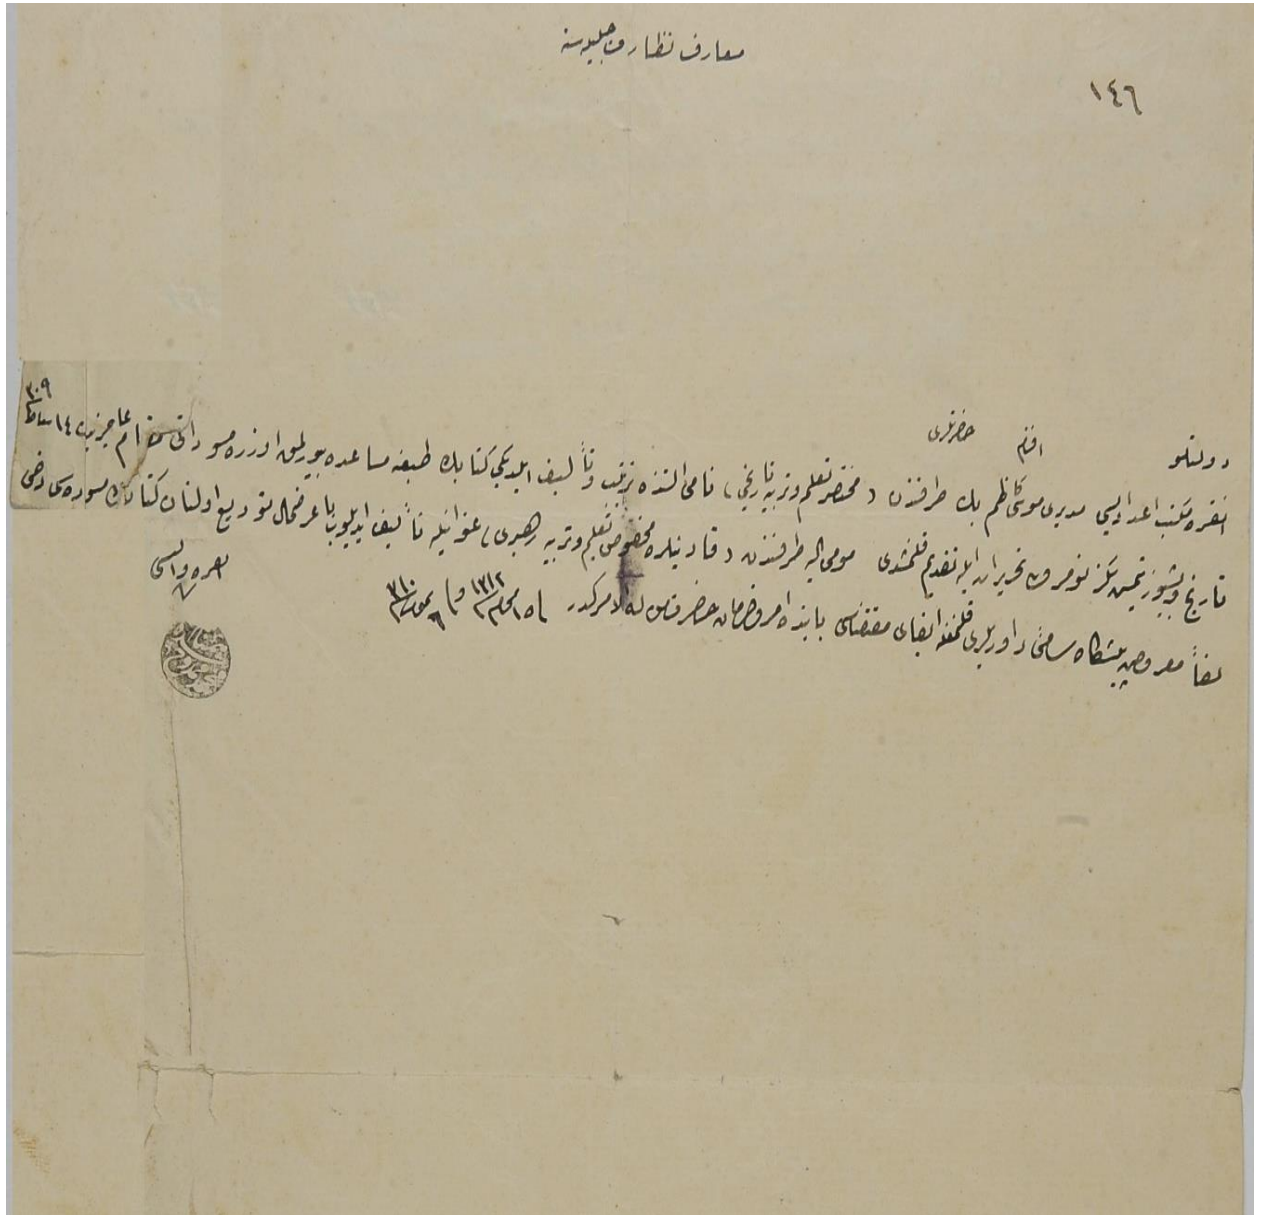 معارف نظارت جليله‌سنه
١٤٦
دولتلو افندم حضرتلرى
انقره مكتب اعداديسى مديرى موسى كاظم بك طرفندن (مختصر تعليم و تربيه تاريخى) نامى آلتنده ترتيب و تأليف ايلديكى كتابك طبعنه مساعده بيورلمق اوزره مسوداتى مقام عاجزيدن ١٤ شباط ٣٠٩
تاريخ و بشيوز يتمش سكز نومرولى تحريرات ايله تقديم قلنمشدى مومى اليه طرفندن (قادينلره مخصوص تعليم و تربيه رهبرى) عنوانيله تأليف ايديلوب با عرضحال توديع اولنان كتابك مسوده‌سى دخى
لفاً معروض پيشكاه سامئ داوريلرى قلنمغله ايفاى مقتضاسى بابنده امر و فرمان حضرت من له الامركدر فى ١٥ محرم ١٣١٢ و فى ٦ تموز ٣١٠
انقره واليسى